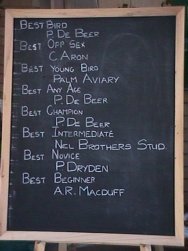 Best Bird
P. De Beer
Best Opp Sex
C. Aron
Best Young Bird
Palm Aviary
Best Any Age
P. De Beer
Best Champion
P. De Beer
Best Intermediate
Nel Brothers Stud
Best Novice
P. Dryden
Best Beginner
A.R. Macduff